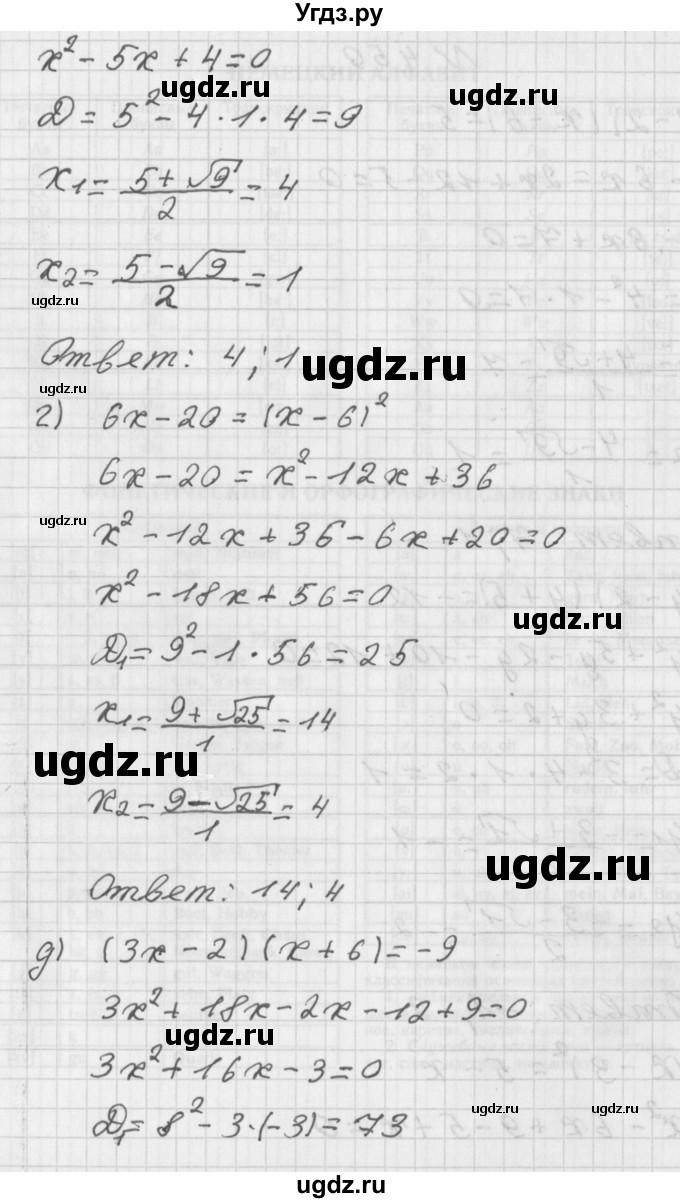 Угдз.ру
x² - 5x + 4 = 0
ugdz.ru ugdz.ru
D = 5² - 4 · 1 · 4 = 9
x₁ = (5 + √9)/2 = 4
x₂ = (5 - √9)/2 = 1
ugdz.ru
Ответ: 4; 1
ugdz.ru ugdz.ru
г) 6x - 20 = (x - 6)²
6x - 20 = x² - 12x + 36
ugdz.ru
x² - 12x + 36 - 6x + 20 = 0
x² - 18x + 56 = 0
ugdz.ru
D₁ = 9² - 1 · 56 = 25
x₁ = (9 + √25)/1 = 14
ugdz.ru
x₂ = (9 - √25)/1 = 4
ugdz.ru
Ответ: 14; 4
д) (3x - 2)(x + 6) = -9
3x² + 18x - 2x - 12 + 9 = 0
ugdz.ru
3x² + 16x - 3 = 0
D₁ = 8² - 3 · (-3) = 73
ugdz.ru ugdz.ru
ugdz.ru